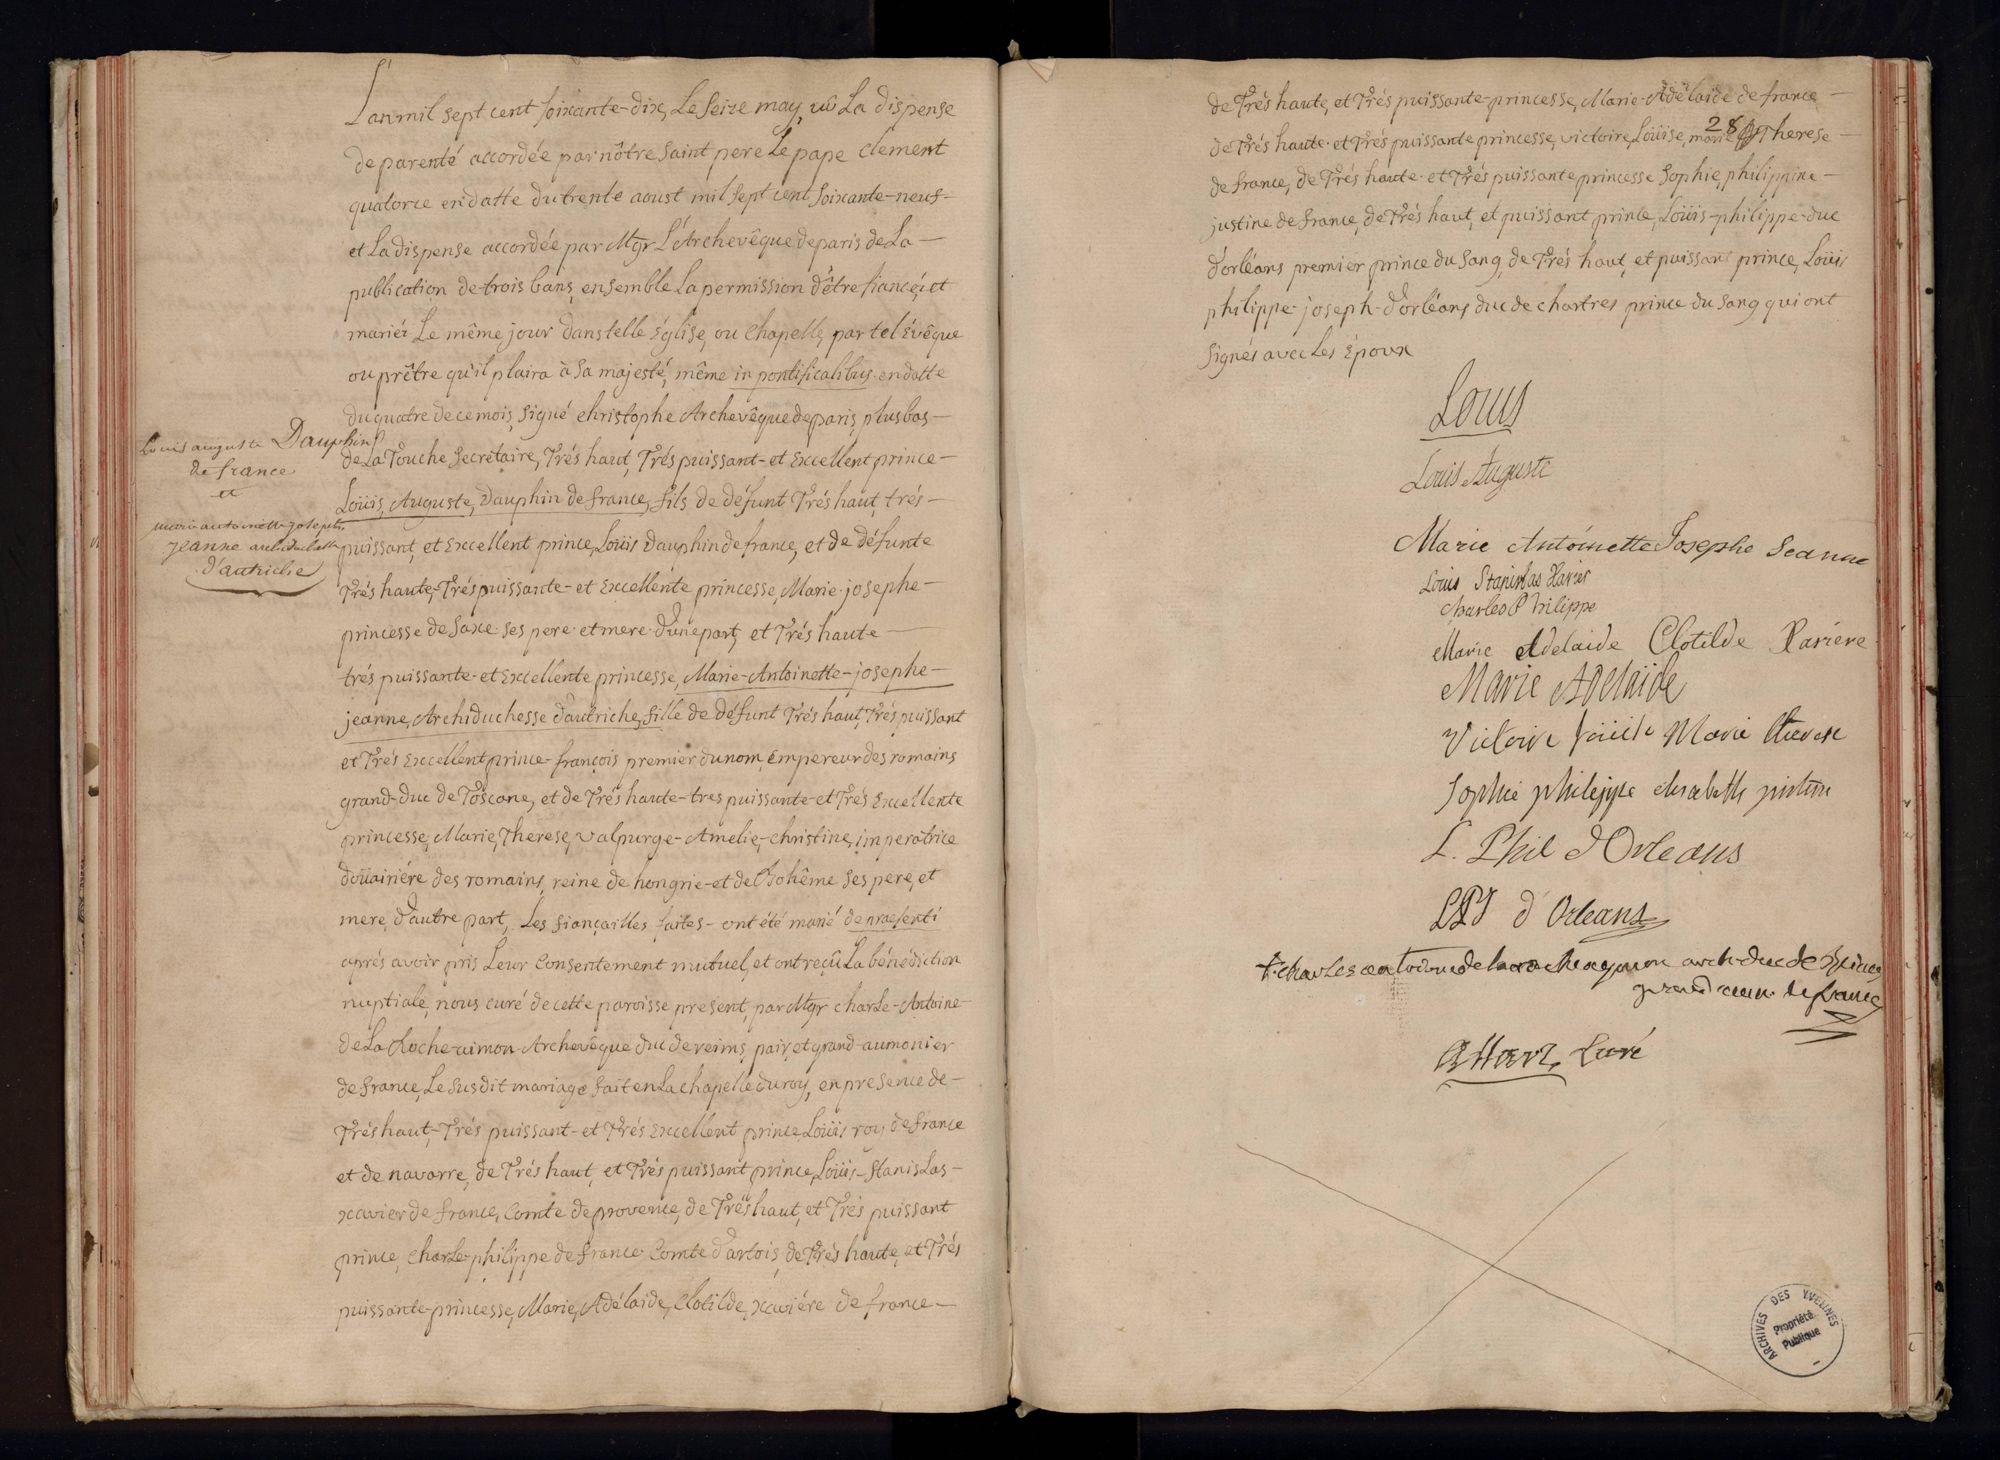 L'an mil sept cent soixante-dix, Le seize may, vû La dispense
de parenté accordée par nôtre saint pere Le pape clement
quatorze en datte du trente aoust mil sept cent soixante-neuf-
et La dispense accordée par Mgr L'Archevêque de paris de La-
publication de trois bans, ensemble La permission d'être fiancéz et
mariéz Le même jour dans telle Église, ou Chapelle, par tel Evêque
ou prêtre qu'il plaira à Sa majesté, même in pontificalibus en datte
du quatre de ce mois, signé christophe Archevêque de paris, plus bas-
Louis auguste Dauphin
de france
et
marie antoinette josephe
jeanne archiduchesse
d'autriche
de La Touche Secretaire, Trés haut, Trés puissant- et Excellent prince-
Loüis, Auguste, Dauphin de france, fils de défunt Trés haut, trés-
puissant, et Excellent prince, Loüis Dauphin de france, et de défunte
Trés haute, Trés puissante- et Excellente princesse, Marie-josephe-
princesse de Saxe ses pere et mere d'une part, et Trés haute-
trés puissante- et Excellente princesse, Marie-Antoinette-josephe-
jeanne, Archiduchesse d'autriche, fille de défunt Trés haut, Trés puissant
et Trés Excellent prince françois premier du nom, Empereur des romains
grand-duc de Toscane, et de Trés haute- tres puissante- et Trés Excellente
princesse, Marie, Therese, Valpurge- Amelie- christine, imperatrice
doüairiére des romains, reine de hongrie- et de Bohême ses pere, et
mere, d'autre part, Les fiançailles faites- ont été marié de praesenti
aprés avoir pris Leur consentement mutuel, et ont reçû La bénédiction
nuptiale, nous curé de cette paroisse present, par Mgr charle-Antoine-
de La Roche-aimon Archevêque duc de reims, pair, et grand-aumonier
de france, Le susdit mariage fait en La chapelle du roy, en presence de-
Trés haut, Trés puissant- et Trés Excellent prince Loüis roy de france
et de navarre, de Trés haut, et Trés puissant prince, Loüis-StanisLas-
xavier de france, Comte de provence, de Trés haut, et Trés puissant
prince, charLe-philippe de france Comte d'artois, de Trés haute, et Trés
puissante-princesse, Marie, Adélaide, Clotilde, xaviére de france-
de Trés haute, et Trés puissante-princesse, Marie-Adélaide de france-
28
de Trés haute- et Trés puissante princesse, victoire, Loüise, marie Therese-
de france, de Trés haute- et Trés puissante princesse Sophie, philippine-
justine de france, de Trés haut, et puissant prince, Loüis-philippe-duc
d'orléans premier prince du sang, de Trés haut, et puissant prince, Loüis
philippe-joseph-d'orléans duc de chartres prince du sang qui ont
signés avec Les Époux
Louis
Louis Auguste
Marie Antoinette Josephe Jeanne
Louis Stanislas Xavier
Charles Philippe
Marie Adelaide Clotilde Xaviere
Marie Adelaïde
Victoire Louise Marie therese
Sophie philippe elisabeth justine
L. Phil d'Orleans
LPJ d'Orleans
+ charles antoine de la roche aymon arch. duc de Reims
grand aum. de france
Allart, Curé
ARCHIVES DES YVELINES
Propriété
Publique